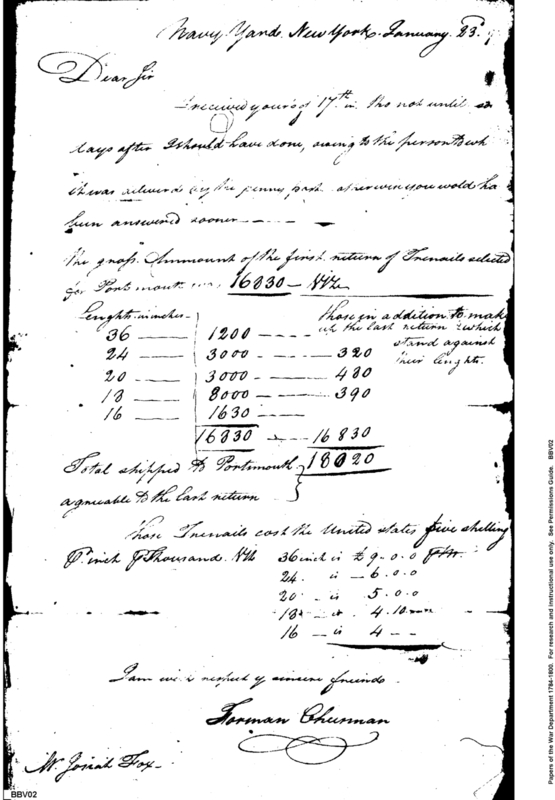 Navy Yard New York January 23d
Dear Sir
I received yours of 17th in tho not until
days after I should have done, owing to the person to wh
it was by the penny post otherwise you wold ha
been answered sooner
The gross Ammount of the first return of Trenails selected
for Portsmouth 16830 Viz
Lenghts inches
those in addition to make
up the last return which
stand against
their lenghts.
36 — 1200
24 — 3000 — 320
20 — 3000 — 480
18 — 8000 — 390
16 — 1630
16830 16830
Total shipped to Portsmouth 18020
agreeable to the last return
those Trenails cost the United states five shilling
Pr inch P Thousand 36 inch is £9.0.0
24 is 6.0.0
20 is 5.0.0
18 is 4.10
16 is 4
I am with respect yr sincere friend
Forman Cheesman
Mr. Josiah Fox
BBV02
Papers of the War Department 1784-1800. For research and instructional use only. See Permissions Guide. BBV02